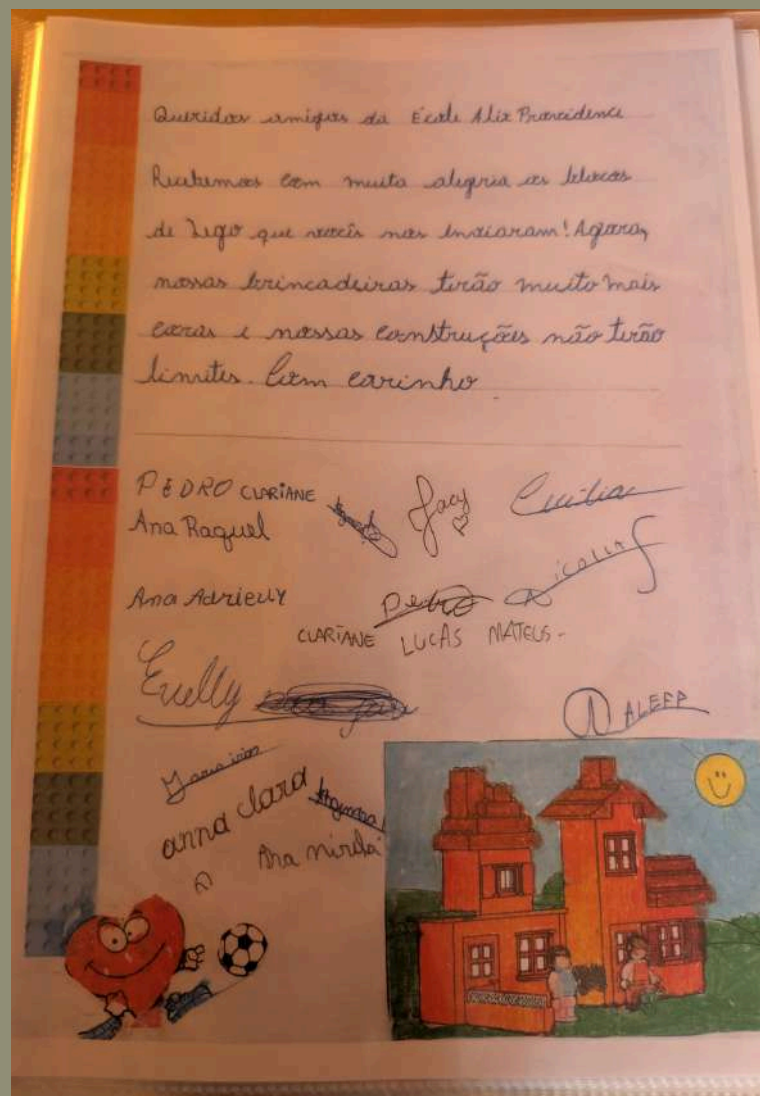 Queridos amigos da École Alix Providence
Recebemos com muita alegria os blocos
de Lego que vocês nos enviaram! Agora,
nossas brincadeiras terão muito mais
cores e nossas construções não terão
limites. Com carinho
PEDRO CLARIANE Jacy Cecilia
Ana Raquel
Ana Adrielly Pedro Nicolly
CLARIANE LUCAS MATEUS-
Evelly
ALEFP
anna clara
Ana mirela